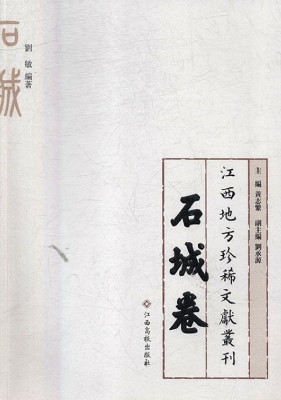 石城
劉敏 編著
主編 黃志繁 副主編 劉承源
江西地方珍稀文獻叢刊
石城卷
江西高校出版社